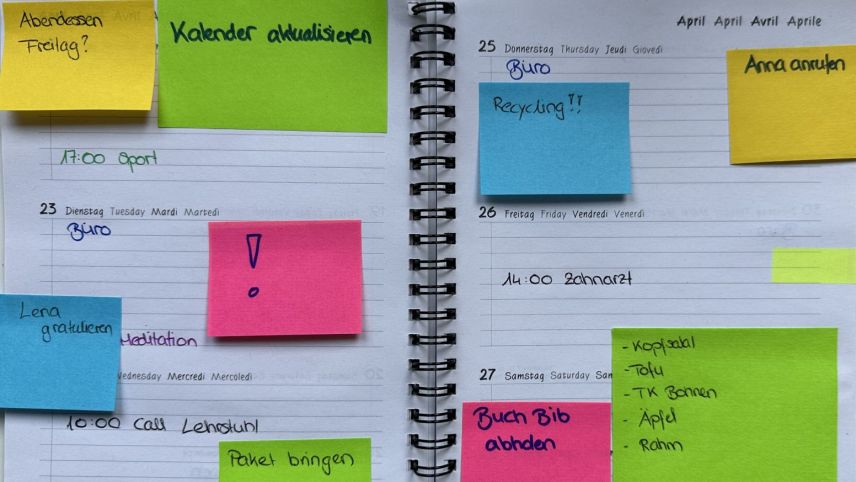 Abendessen
Freitag?
Kalender aktualisieren
17:00 Sport
23 Dienstag Tuesday Mardi Martedì
Büro
!
Lena
gratulieren
Meditation
Wednesday Mercredi Mercoledì
10:00 Call Lehrstuhl
Paket bringen
April April Avril Aprile
25 Donnerstag Thursday Jeudi Giovedì
Büro
Anna anrufen
Recycling!!
26 Freitag Friday Vendredi Venerdì
14:00 Zahnarzt
27 Samstag Saturday
Buch Bib
abholen
- Kopfsalat
- Tofu
- TK Bohnen
- Äpfel
- Rahm